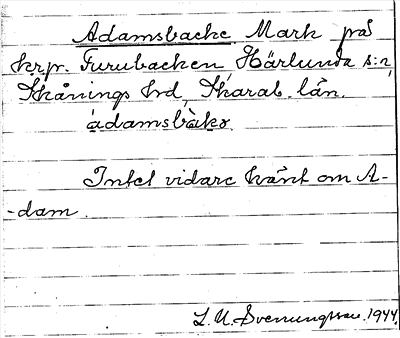 Adamsbacke Mark på
krp. Furubacken Härlunda s:n,
Skånings hd, Skarab. län.
ádamsbàkə.
Intet vidare känt om A-
-dam.
L. A. Svenungsson. 1944.